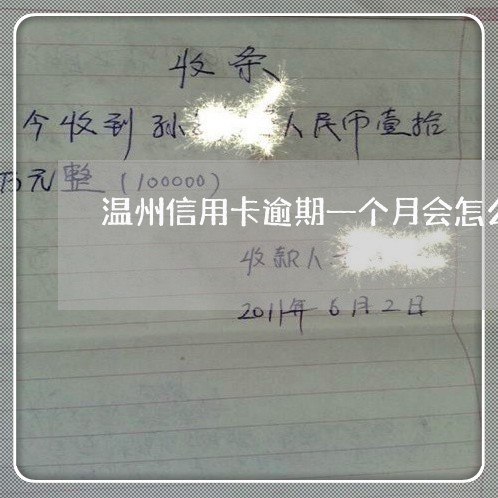 收条
今收到孙 人民币壹拾
万元整（100000）
温州信用卡逾期一个月会怎
收款人
2011年6月2日